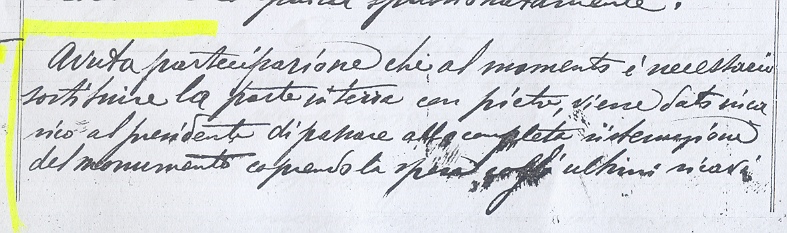 spassionatamente.
Avuta partecipazione che al momento é necessario
sostituire la parte in terra con pietre, viene dato inca
rico al presidente di passare alla completa sistemazione
del monumento coprendo la spesa cogli ultimi ricavi